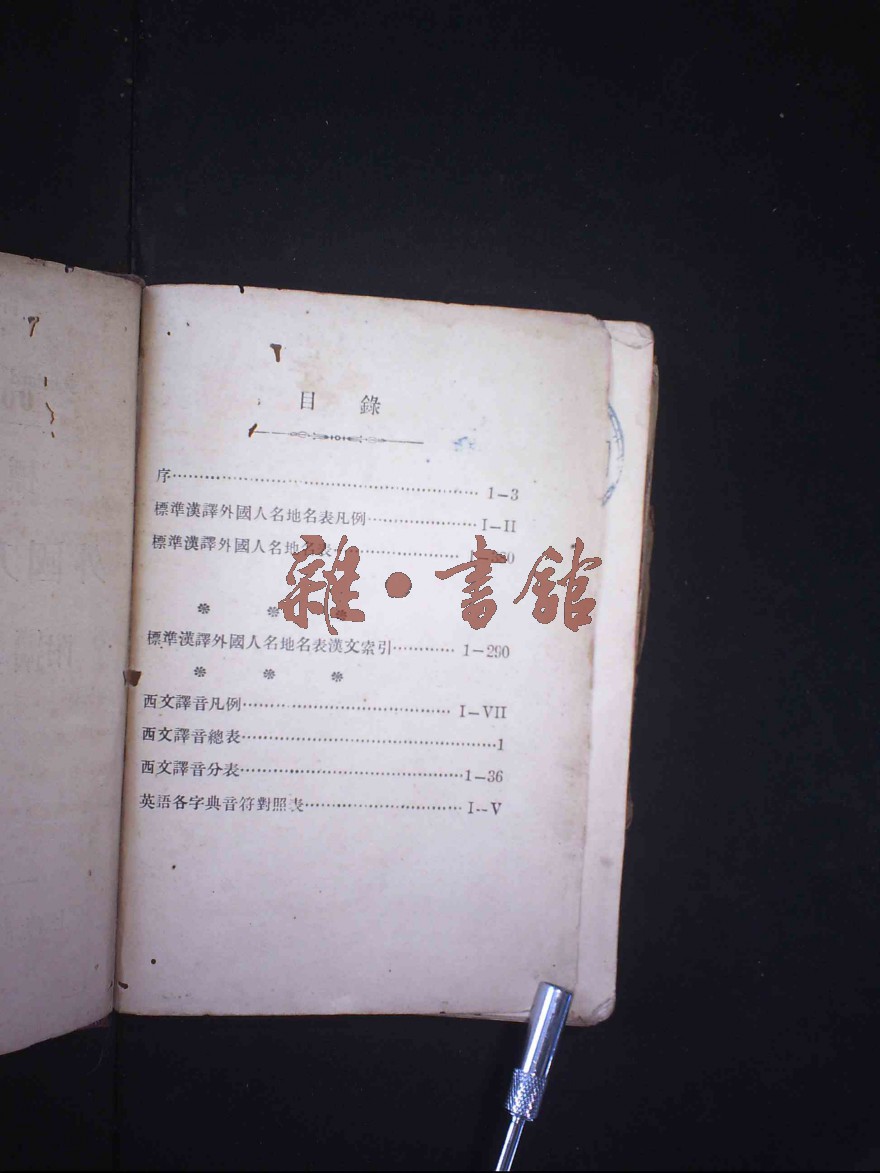 目 錄
序 1-3
標準漢譯外國人名地名表凡例 I-II
標準漢譯外國人名地名表
雜·書館
標準漢譯外國人名地名表漢文索引 1-290
西文譯音凡例 I-VII
西文譯音總表 1
西文譯音分表 1-36
英語各字典音符對照表 I-V